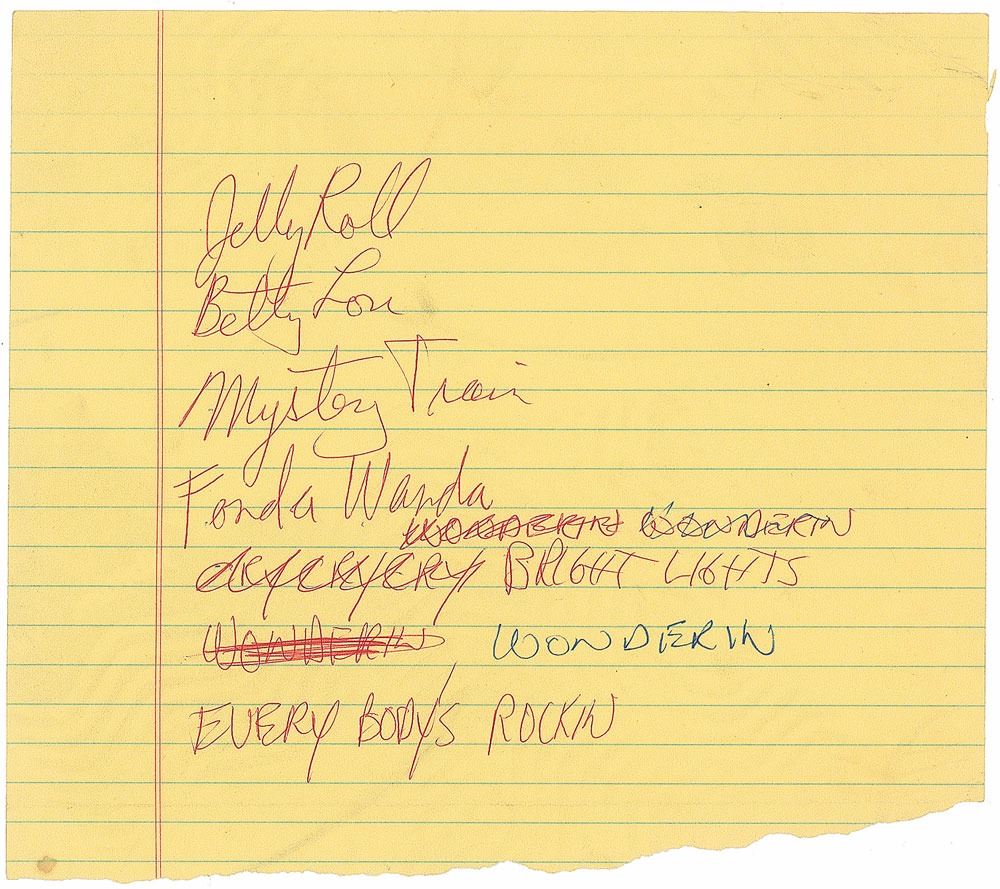 Jelly Roll
Betty Lou
Mystery Train
Fonda Wanda
WONDERIN WONDERIN
CRY CRY CRY BRIGHT LIGHTS
WONDERIN WONDERIN
EVERY BODY'S ROCKIN